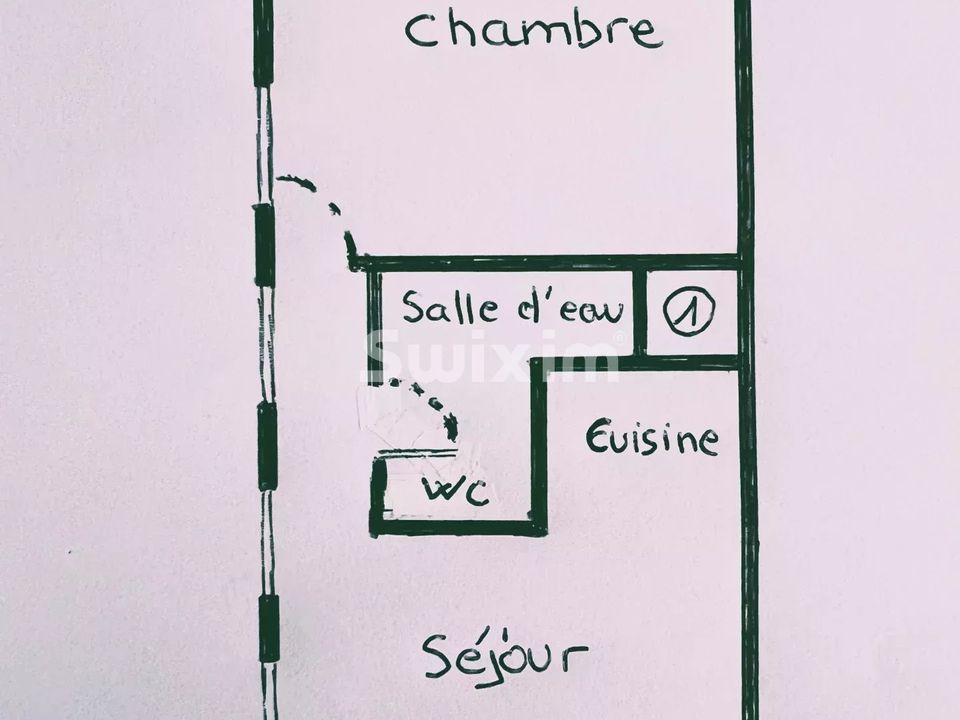 Chambre
Salle d'eau
1
Swixim®
Cuisine
WC
Séjour